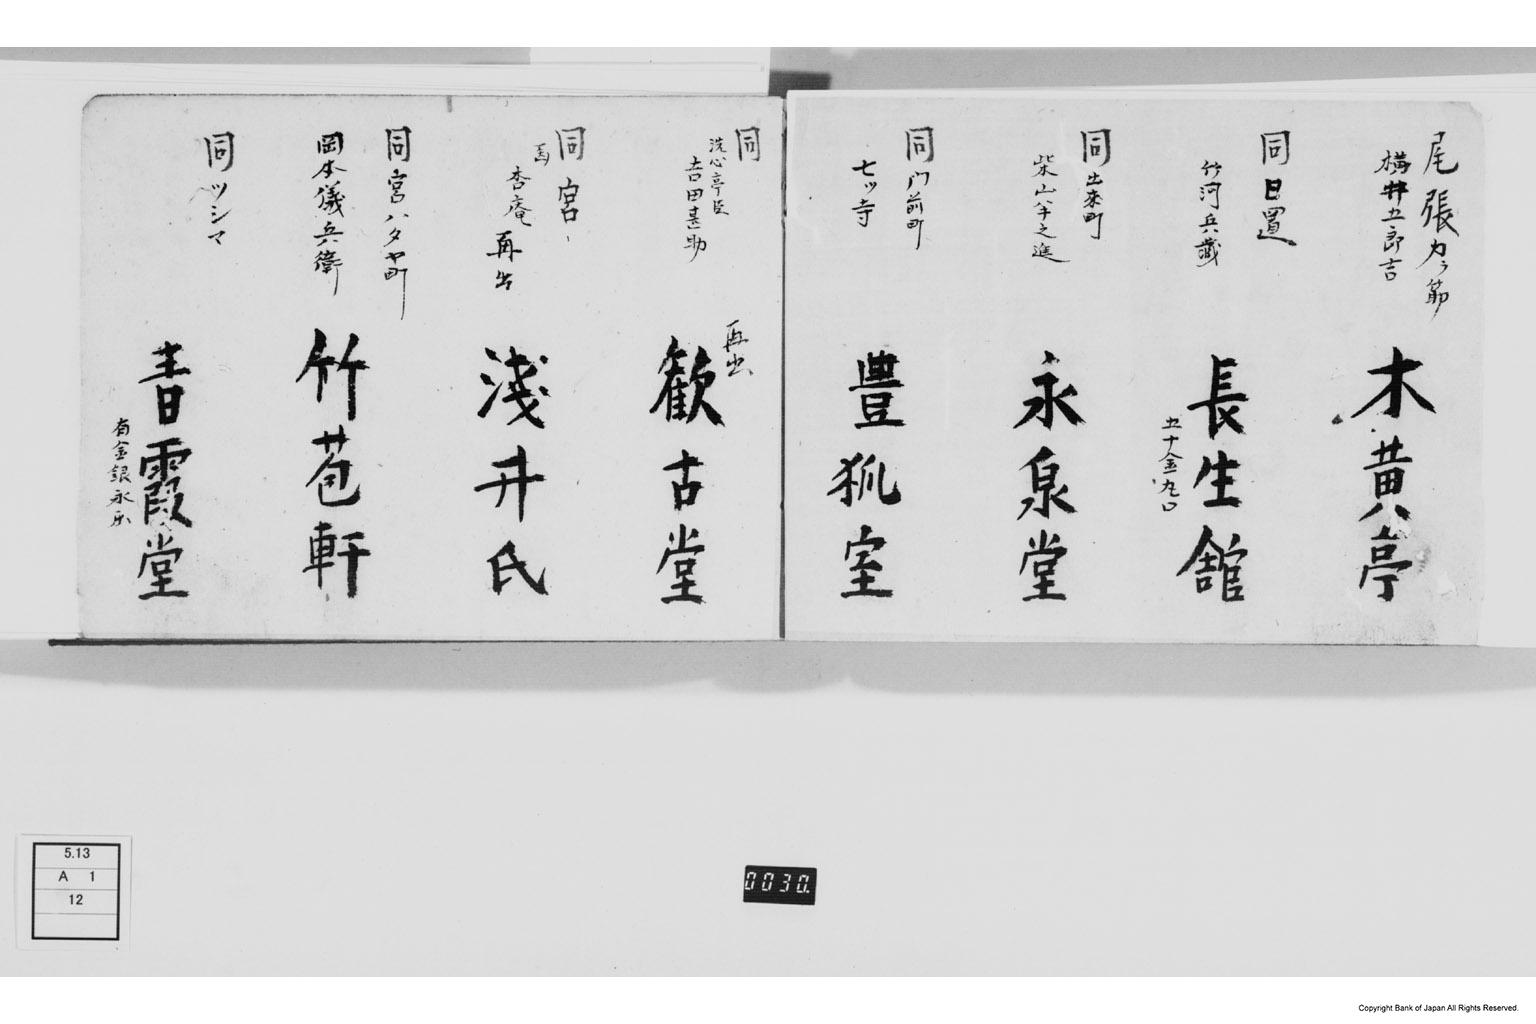 尾張カラ筋
横井五郎吉
木黄亭
同日置
竹河兵蔵
長生舘
五十金
同出来町
柴山半之進
永泉堂
同門前町
七ツ寺
豊狐室
同
洗心亭臣
吉田甚助
再出
歓古堂
同宮
杏庵
再出
淺井氏
同宮ハタヤ町
岡本儀兵衛
竹苞軒
同ツシマ
青霞堂
有金銀永楽
5.13
A 1
12
0030.
Copyright Bank of Japan All Rights Reserved.